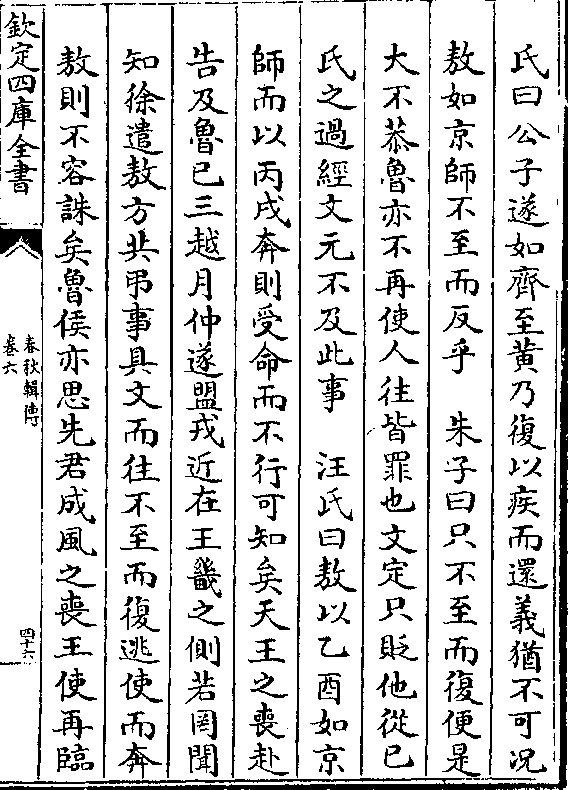 氏曰公子遂如齊至黄乃復以疾而還義猶不可况
敖如京師不至而反乎　朱子曰只不至而復便是
大不恭魯亦不再使人往皆罪也文定只貶他從已
氏之過經文元不及此事　汪氏曰敖以乙酉如京
師而以丙戌奔則受命而不行可知矣天王之喪赴
告及魯已三越月仲遂盟戎近在王畿之側若罔聞
知徐遣敖方共弔事具文而往不至而復逃使而奔
敖則不容誅矣魯侯亦思先君成風之喪王使再臨
欽定四庫全書
春秋輯傳
卷六
四十六